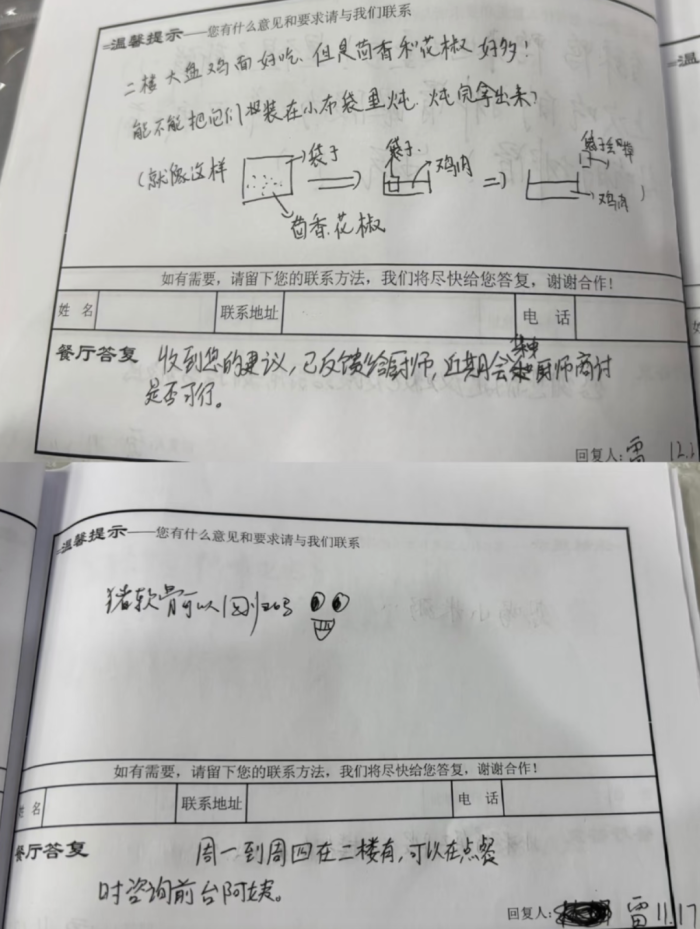 温馨提示——您有什么意见和要求请与我们联系
二楼大盘鸡面好吃、但是茴香和花椒好多!
能不能把它们包装在小布袋里炖.炖完拿出来?
(就像这样
袋子
茴香.花椒
袋子
鸡肉
鸡肉
)
如有需要,请留下您的联系方法,我们将尽快给您答复,谢谢合作!
姓 名 联系地址 电 话
餐厅答复 收到您的建议,已反馈给厨师,近期会 厨师商讨
是否可行。
回复人:雷
温馨提示——您有什么意见和要求请与我们联系
猪软骨可以
如有需要,请留下您的联系方法,我们将尽快给您答复,谢谢合作!
名 联系地址 电 话
餐厅答复 周一到周四在二楼有,可以在点餐
时咨询前台阿姨。
回复人: 雷 11.17